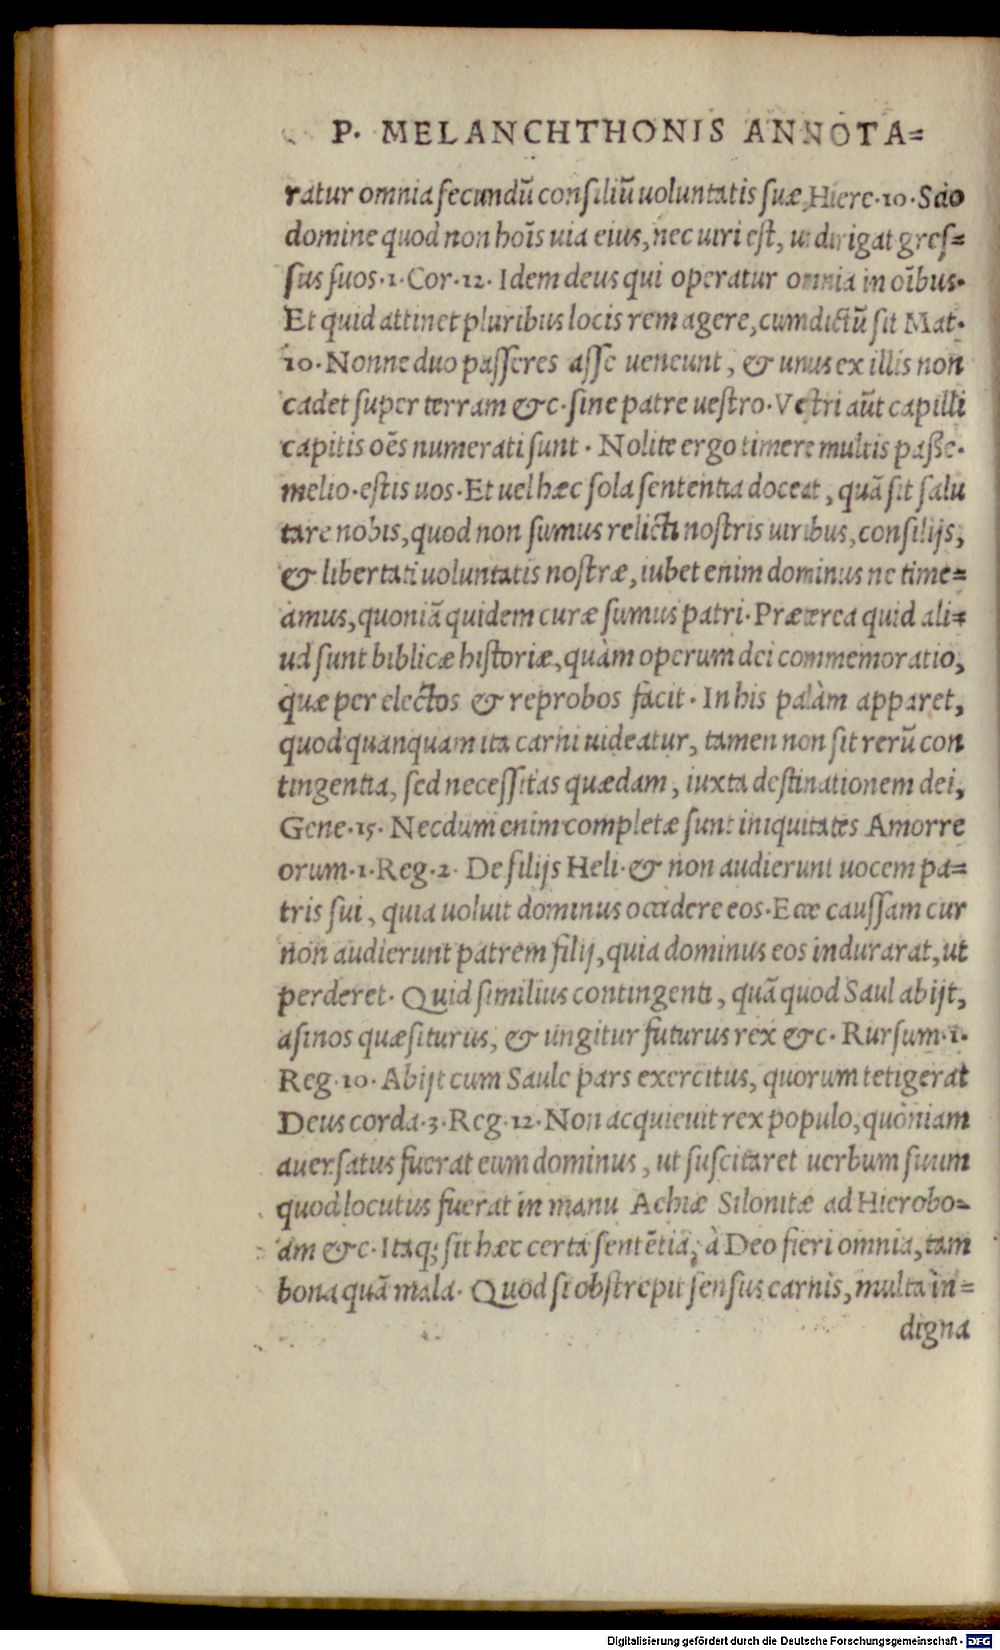 P. MELANCHTHONIS ANNOTA=
ratur omnia secundũ consiliũ uoluntatis suæ. Hiere. 10. Scio
domine quod non hoĩs uia eius, nec uiri est, ut dirigat gres=
sus suos. 1. Cor. 12. Idem deus qui operatur omnia in oĩbus.
Et quid attinet pluribus locis rem agere, cum dictũ sit Mat.
10. Nonne duo passeres asse ueneunt, & unus ex illis non
cadet super terram &c. sine patre uestro. Vestri aũt capilli
capitis oẽs numerati sunt. Nolite ergo timere multis paße.
melio. estis uos. Et uel hæc sola sententia doceat, quã sit salu
tare nobis, quod non sumus relicti nostris uiribus, consilijs,
& libertati uoluntatis nostræ, iubet enim dominus ne time=
amus, quoniã quidem curæ sumus patri. Præterea quid ali=
ud sunt biblicæ historiæ, quàm operum dei commemoratio,
quæ per electos & reprobos facit. In his palàm apparet,
quod quanquam ita carni uideatur, tamen non sit rerũ con
tingentia, sed necessitas quædam, iuxta destinationem dei,
Gene. 15. Necdum enim completæ sunt iniquitates Amorre
orum. 1. Reg. 2. De filijs Heli. & non audierunt uocem pa=
tris sui, quia uoluit dominus occidere eos. Ecce caussam cur
non audierunt patrem filij, quia dominus eos indurarat, ut
perderet. Quid similius contingenti, quã quod Saul abijt,
asinos quæsiturus, & ungitur futurus rex &c. Rursum. 1.
Reg. 10. Abijt cum Saule pars exercitus, quorum tetigerat
Deus corda. 3. Reg. 12. Non acquieuit rex populo, quòniam
auersatus fuerat eum dominus, ut suscitaret uerbum suum
quod locutus fuerat in manu Achiæ Silonitæ ad Hierobo=
am &c. Itaq; sit hæc certa sentẽtia, à Deo fieri omnia, tam
bona quã mala. Quod si obstrepit sensus carnis, multa in=
digna
Digitalisierung gefördert durch die Deutsche Forschungsgemeinschaft - DFG